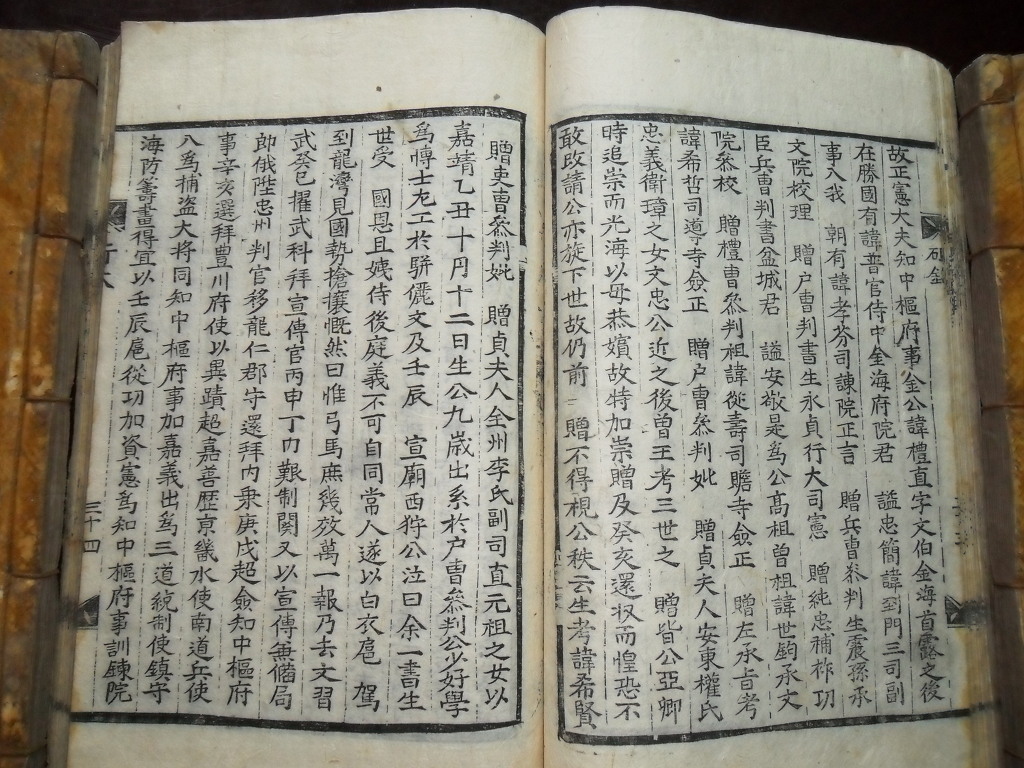 故正憲大夫知中樞府事金公諱禮直字文伯金海首露之後
在勝國有諱普官侍中金海府院君 謚忠簡諱到門三司副
事入我 朝有諱孝芬司諫院正言 贈兵曹叅判生震孫承
文院校理 贈户曹判書生永貞行大司憲 贈純忠補祚功
臣兵曹判書盆城君 謚安敬是為公髙祖曾祖諱世鈞承文
院叅校 贈禮曹叅判祖諱從壽司贍寺僉正 贈左承旨考
諱希哲司導寺僉正 贈户曹叅判妣 贈貞夫人安東權氏
忠義衛璋之女文忠公近之後曽王考三世之 贈皆公亞卿
時追崇而光海以母恭嬪故特加崇贈及癸亥還收而惶恐不
敢改請公亦旋下世故仍前 贈不得視公秩云生考諱希賢
贈吏曹叅判妣 贈貞夫人全州李氏副司直元祖之女以
嘉靖乙丑十月十二日生公九歲出系於户曹叅判公少好學
為博士尤工於騈儷文及壬辰 宣廟西狩公泣曰余一書生
世受 國恩且姨侍後庭義不可自同常人遂以白衣扈 駕
到龍灣見國勢搶攘慨然曰惟弓馬庶幾效萬一報乃去文習
武癸巳擢武科拜宣傳官丙申丁內艱制闋又以宣傳兼備局
郎俄陞忠州判官移龍仁郡守還拜内乗庚戌超僉知中樞府
事辛亥選拜豊川府使以異蹟超嘉善歴京畿水使南道兵使
入為捕盗大将同知中樞府事加嘉義出為三道統制使鎮守
海防籌畫得宜以壬辰扈從功加資憲為知中樞府事訓鍊院
三十四